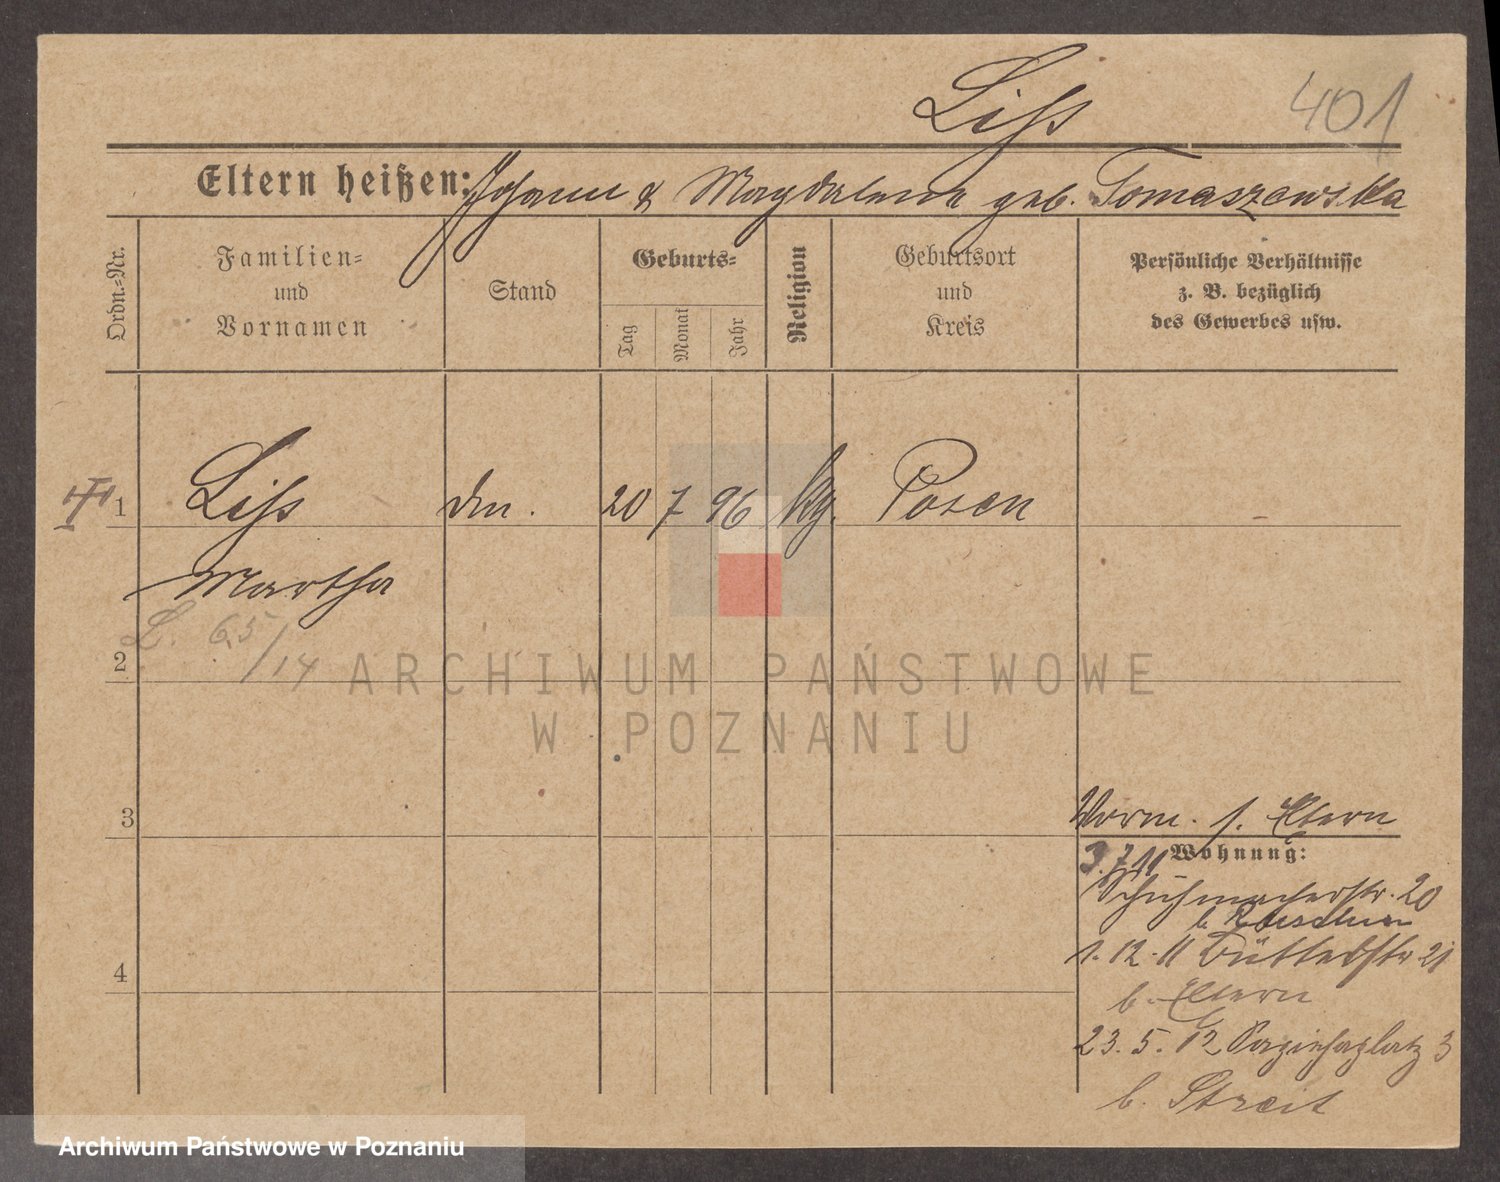 Liss
401
Eltern heißen: Johann & Magdalena geb. Tomaszewska
Ordn.=Nr.
Familien=
und
Vornamen
Stand
Geburts=
Tag
Monat
Jahr
Religion
Geburtsort
und
Kreis
Persönliche Verhältnisse
z. B. bezüglich
des Gewerbes usw.
1 Liss
20 7 96
Posen
Martha
L. 65/14
2
ARCHIWUM PAŃSTWOWE
W POZNANIU
3
Vorm. s. Eltern
Wohnung:
3.7.11
Schuhmacherstr. 20
b.
1.12.11 Büttelstr 21
4
b. Eltern
23.5.12 Sapiehaplatz 3
b. Streit
Archiwum Państwowe w Poznaniu